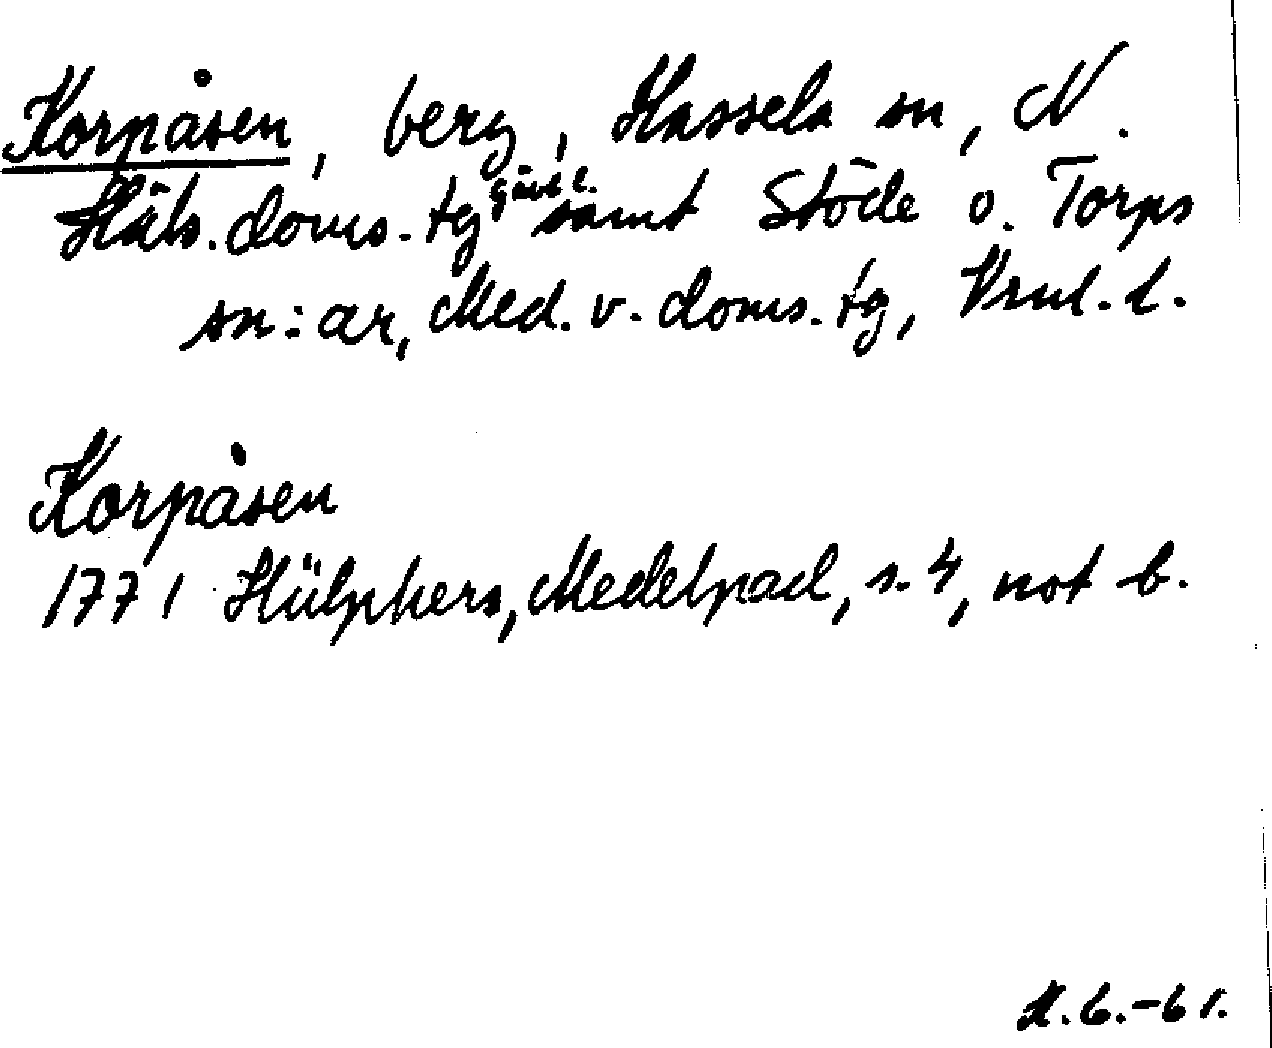 Korpåsen, berg, Hassela sn, N.
Häls. doms. tg gävl. l. samt Stöde o. Torps
sn:ar, Med. v. doms. tg, Vrnl. l.
Korpåsen
1771 Hülphers, Medelpad, s. 4, not b.
H.G.-61.